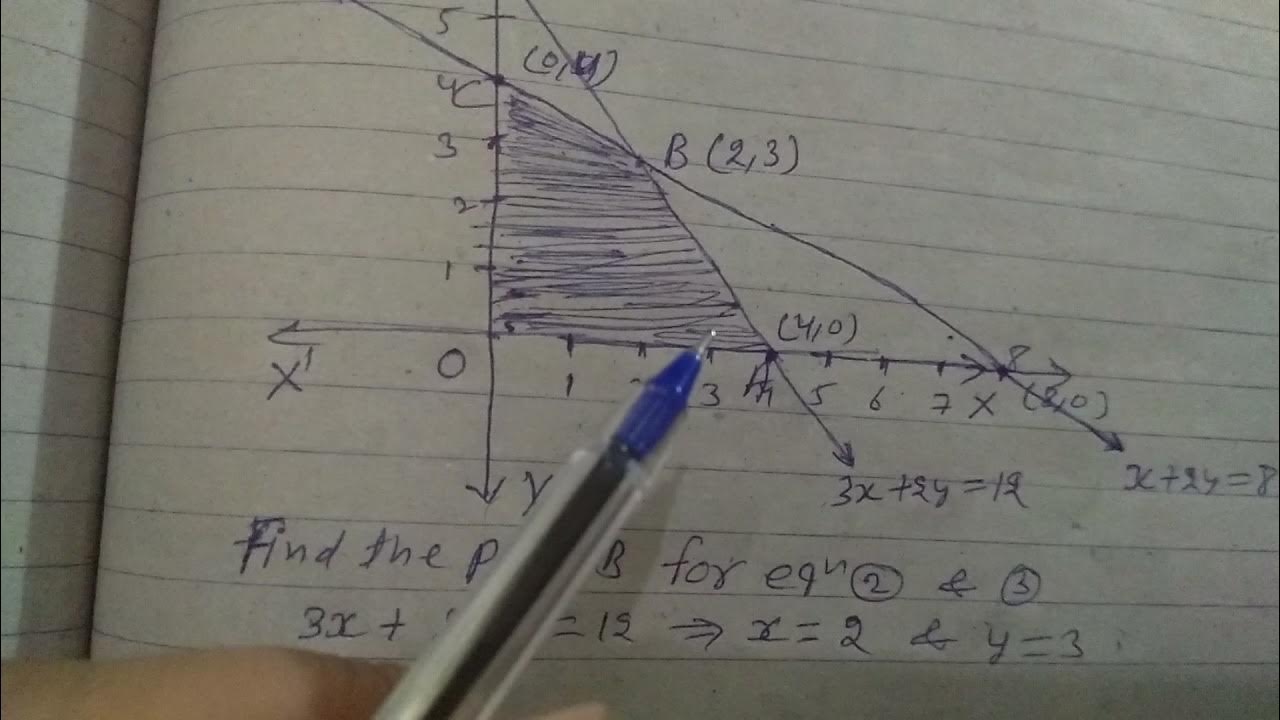 5
(0,4)
4C
3
B (2,3)
2
1
(4,0)
8
X' O 1 3 A 4 5 6 7 X (8,0)
3x+2y=12
x+2y=8
Y
Find the B for eqⁿ ② & ③
3x + =12 ⇒ x=2 & y=3